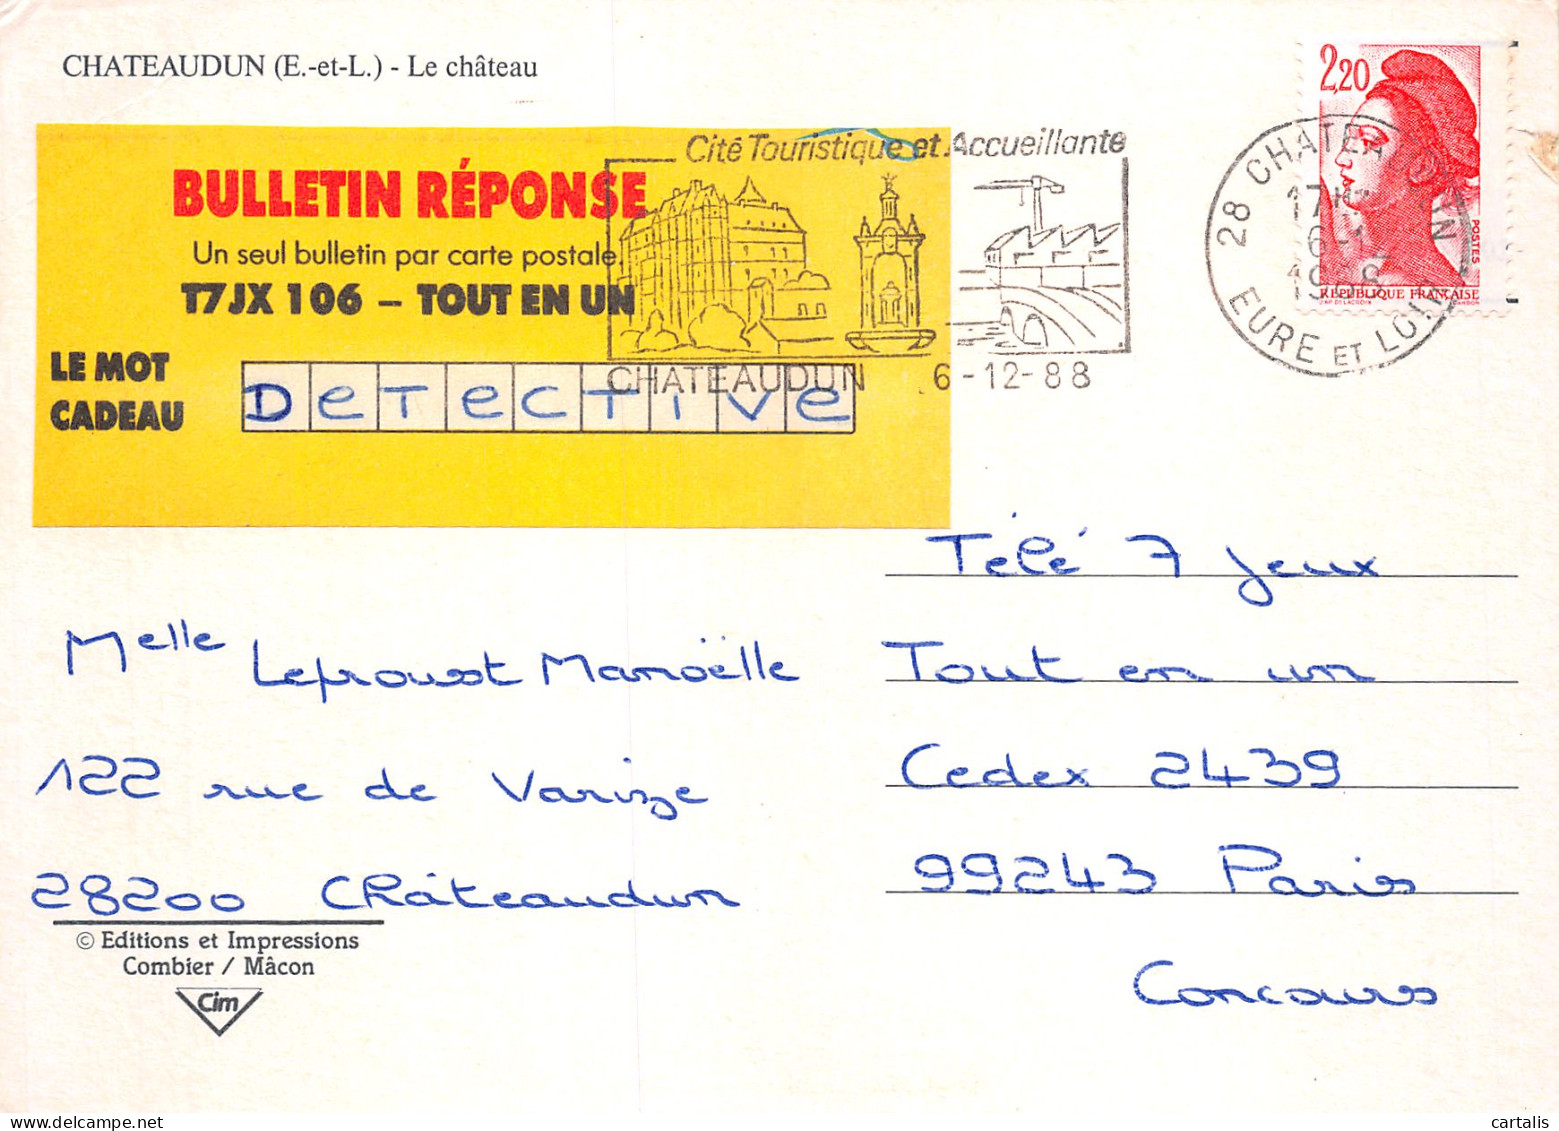 CHATEAUDUN (E.-et-L.) - Le château
2,20
POSTES
RÉPUBLIQUE FRANÇAISE
28 CHATEAUDUN
17H
6-12
1988
EURE ET LOIR
Cité Touristique et Accueillante
CHATEAUDUN 6-12-88
BULLETIN RÉPONSE
Un seul bulletin par carte postale.
T7JX 106 – TOUT EN UN
LE MOT
CADEAU
DeTecTive
Télé 7 Jeux
Tout en un
Cedex 2439
99243 Paris
Concours
Melle Leproust Manoëlle
122 rue de Varize
28200 Châteaudun
© Editions et Impressions
Combier / Mâcon
Cim
www.cartalis.com